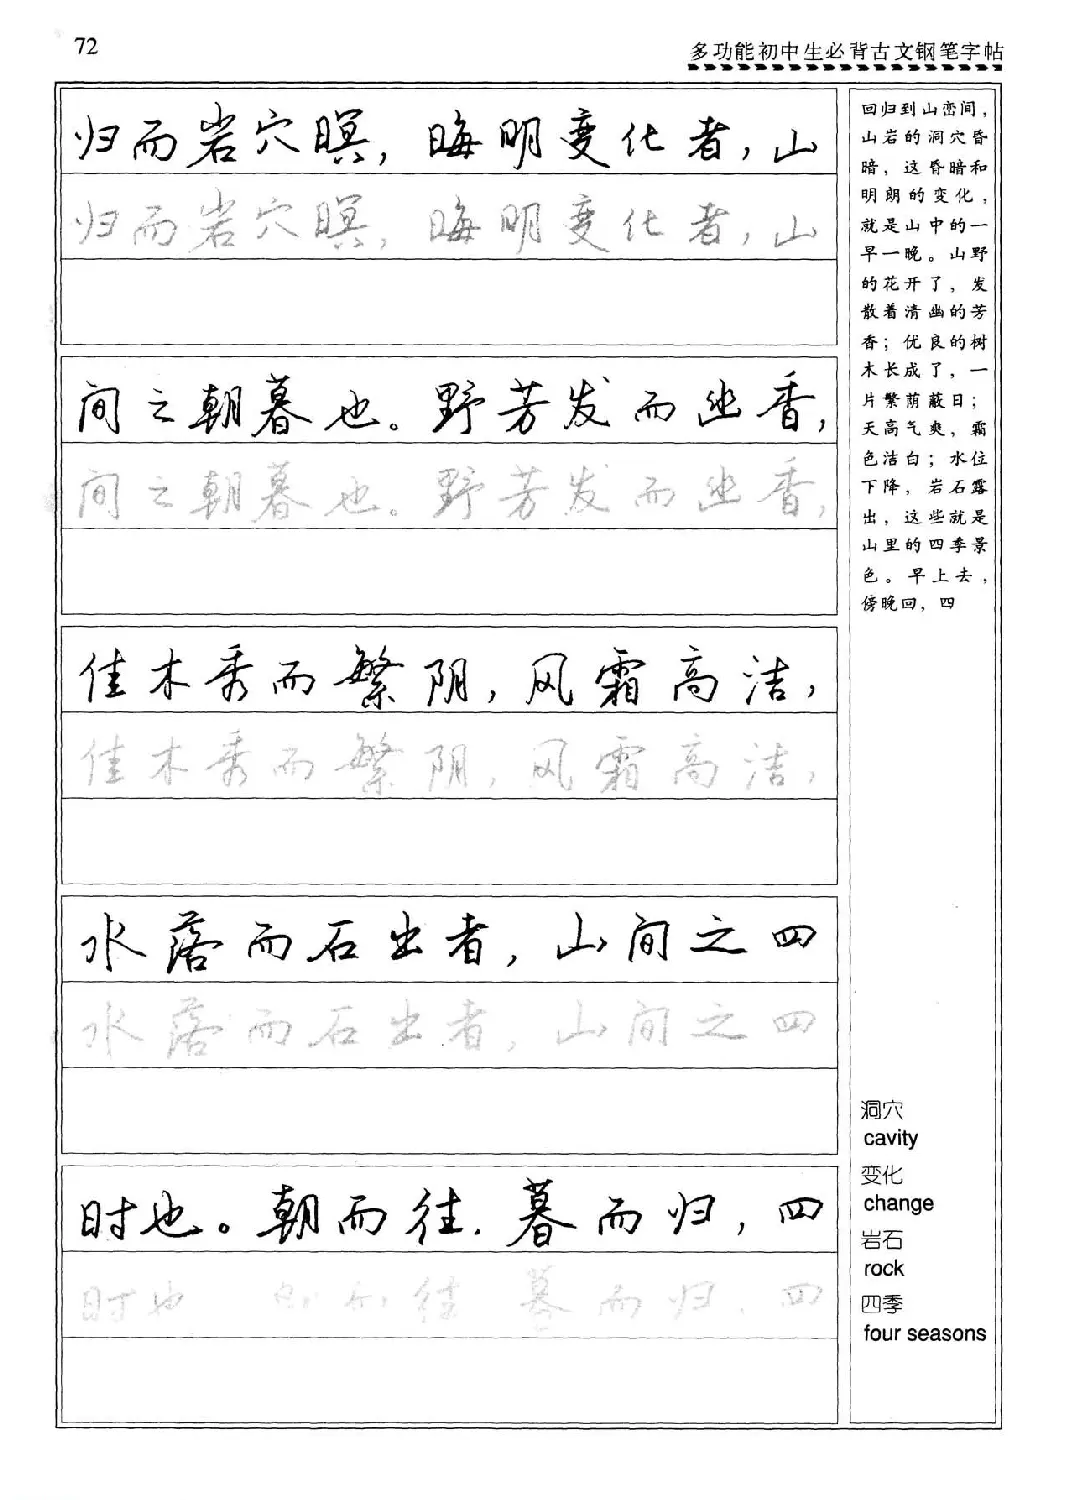 72
多功能初中生必背古文钢笔字帖
归而岩穴暝，晦明变化者，山
归而岩穴暝，晦明变化者，山
间之朝暮也。野芳发而幽香，
间之朝暮也。野芳发而幽香，
佳木秀而繁阴，风霜高洁，
佳木秀而繁阴，风霜高洁，
水落而石出者，山间之四
水落而石出者，山间之四
时也。朝而往．暮而归，四
时也 往 暮而归，四
回归到山峦间，
山岩的洞穴昏
暗，这昏暗和
明朗的变化，
就是山中的一
早一晚。山野
的花开了，发
散着清幽的芳
香；优良的树
木长成了，一
片繁荫蔽日；
天高气爽，霜
色洁白；水位
下降，岩石露
出，这些就是
山里的四季景
色。早上去，
傍晚回，四
洞穴
cavity
变化
change
岩石
rock
四季
four seasons